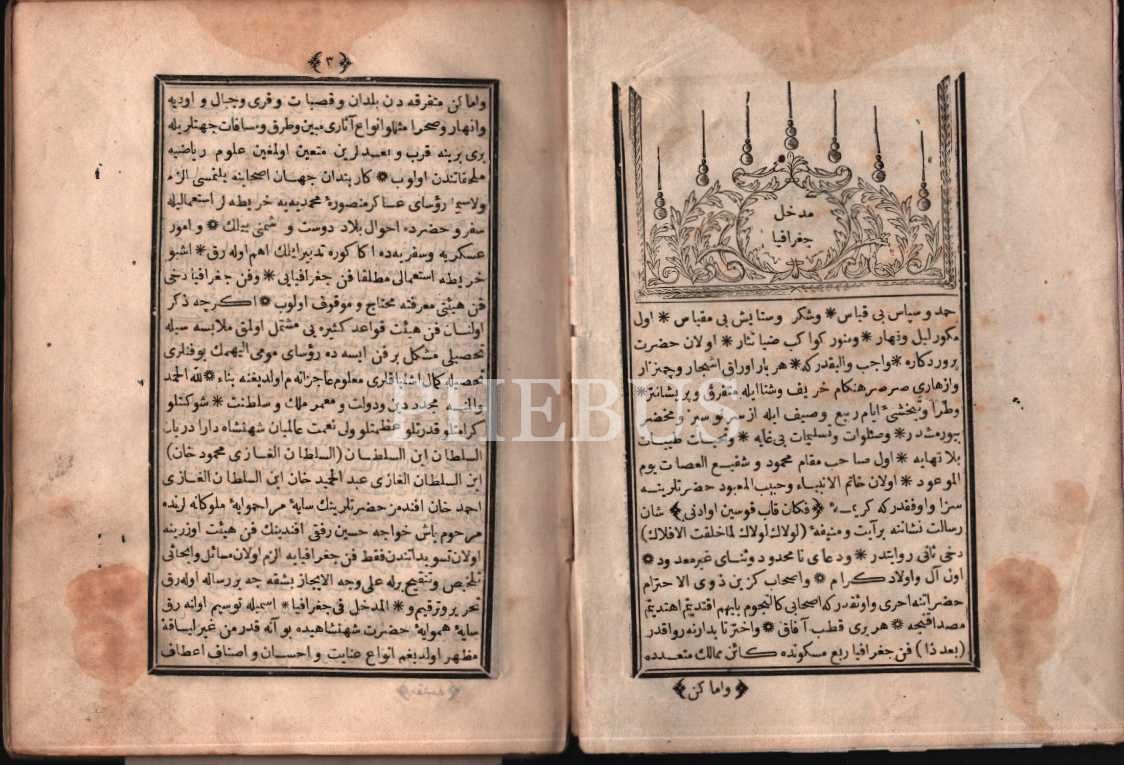 مدخل
جغرافيا
حمد و سپاس بی قیاس * وشکر وستایش بی مقیاس * اول
مکور لیل ونهار * ومنور کواکب ضیانثار * اولان حضرت
پروردکاره * واجب والیقدرکه * هر بار اوراق اشجار وچمنزار
وازهاری صرصر هنکام خریف وشتا ایله متفرق و پریشان
وطرا وتبخشیٔ ایام ربیع وصیف ایله از سر نو سبز ومخضر
وصلوات وتسلیمات بی غایه * وتحیات طیبات
بلا نهایه * اول صاحب مقام محمود و شفیع العصات یوم
الموعود * اولان خاتم الانبیاء وحبیب المعبود حضرتلرینه
سزا واوفقدرکه کریمهٔ ﴿فکان قاب قوسین اوادنی﴾ شان
رسالت نشاننه برآیت ومنیفهٔ (لولاك لولاك لما خلقت الافلاك)
دخی ثانی روایتدر * ودعای نامحدود وثنای غیر معدود *
اون آل واولاد کرام * واصحاب کزین ذوی الاحترام
حضراتنه احری واوثقدرکه اصحابی کالنجوم بایهم اقتدیتم اهتدیتم
مصداقنجه * هر بری قطب آفاق * واختر تابدارنه رواقدر
(بعد ذا) فن جغرافیا ربع مسکونده کائن ممالك متعدده
﴿واماکن﴾
﴿٣﴾
واماکن متفرقه دن بلدان وقصبات وقری وجبال و اودیه
وانهار وصحرا مثللو انواع آثاری مبین وطرق ومسافات جهتلریله
بری برینه قرب و بعدلرین متعین اولمغین علوم ریاضیه
ملحقاتندن اولوب * کاربندان جهان اصحابنه بلنمسی الزم
ولاسیما رؤسای عساکر منصورهٔ محمدیه یه خریطه لر استعمالیله
سفر وحضرده احوال بلاد دوست و دشمنی بیلمك * و امور
عسکریه وسفریه ده اکا کوره تدبیر ایلمك اهم اوله رق * اشبو
خریطه استعمالی مطلقا فن جغرافیایی * وفن جغرافیا دخی
فن هیئتی معرفته محتاج و موقوف اولوب * اکرچه ذکر
اولنان فن هیئت قواعد کثیره یی مشتمل اولمق ملابسه سیله
تحصیلی مشکل بر فن ایسه ده رؤسای مومی الیهمك بو فنلری
تحصیله کمال اشتیاقلری معلوم عاجزانه م اولدیغنه بناء * لله الحمد
والمنه مجدد دین ودولت و معمر ملك و سلطنت * شوکتلو
کرامتلو قدرتلو عظمتلو ولی نعمت عالمیان شهنشاه دارا دربان
السلطان ابن السلطان (السلطان الغازی محمود خان)
ابن السلطان الغازی عبد الحمید خان ابن السلطان الغازی
احمد خان افندمز حضرتلرینك سایهٔ مراحموایهٔ ملوکانه لرنده
مرحوم باش خواجه حسین رفقی افندینك فن هیئت اوزرینه
اولان تسویداتندن فقط فن جغرافیایه الزم اولان مسائل وابحاثی
تلخیص وتنقیح برله علی وجه الایجاز بشقه جه بر رساله اوله رق
تحریر وترقیم و * المدخل فی جغرافیا * اسمیله توسیم اولنه رق
سایهٔ هموایهٔ حضرت شهنشاهیده بو آنه قدر من غیر لیاقة
مظهر اولدیغم انواع عنایت و احسان و اصناف اعطاف
PHEBUS